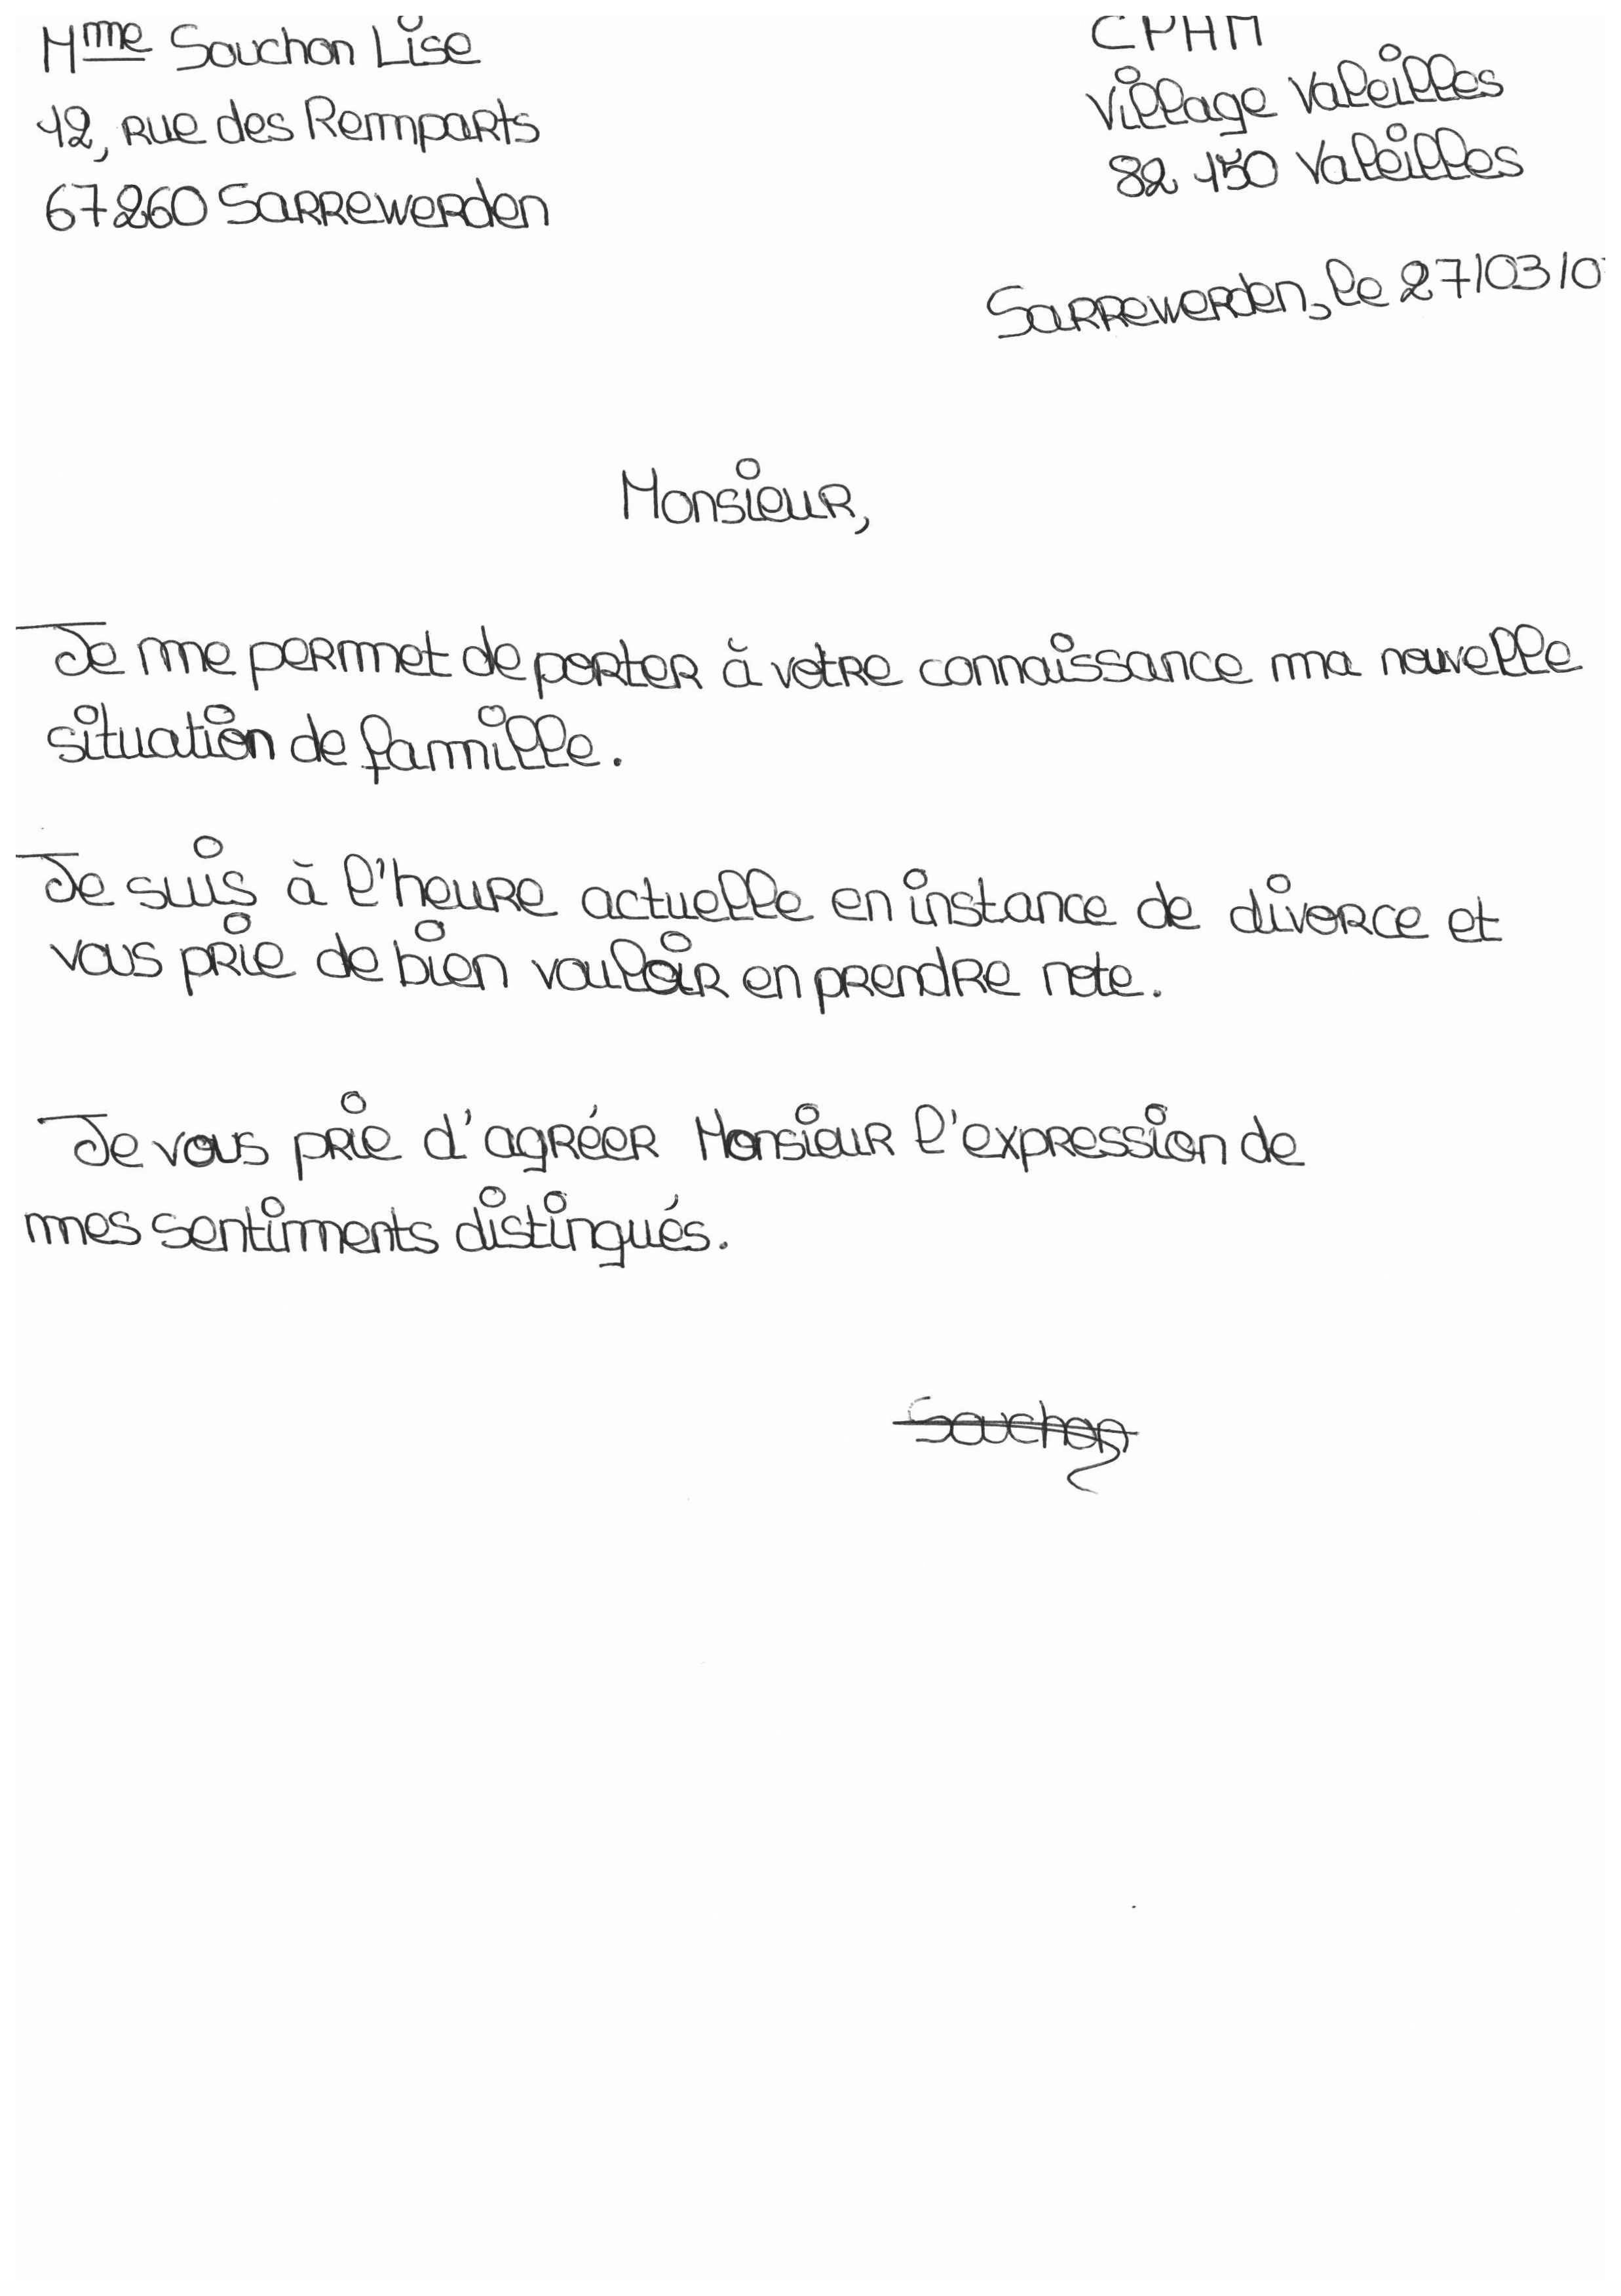 Mme Souchon Lise
12, rue des Remparts
67260 Sarrewerden
CPHM
Village Valeilles
82 150 Valeilles
Sarrewerden, le 27/03/0
Monsieur,
Je me permet de porter à votre connaissance ma nouvelle
situation de famille.
Je suis à l'heure actuelle en instance de divorce et
vous prie de bien vouloir en prendre note.
Je vous prie d'agréer Monsieur l'expression de
mes sentiments distingués.
Souchon